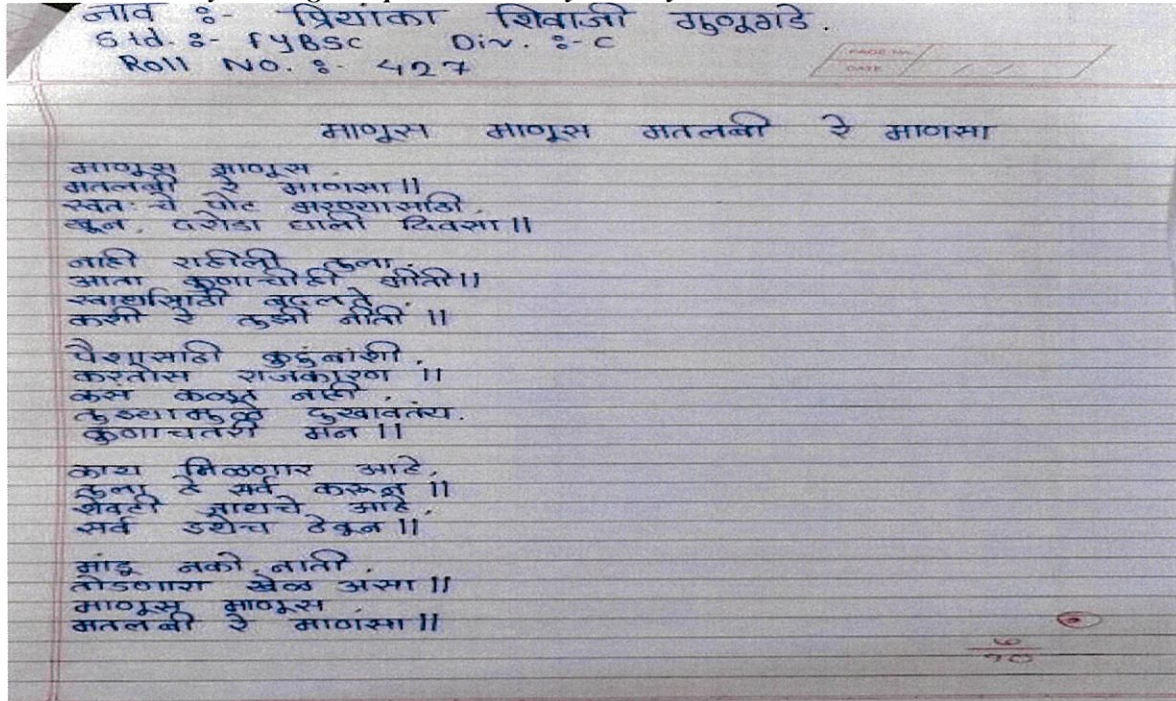 नाव :- प्रियांका शिवाजी गुळूगडे.
Std. :- FYBSC Div. :- C
Roll NO. :- 427
PAGE No.
DATE / /
माणूस माणूस मतलबी रे माणसा
माणूस माणूस.
मतलबी रे माणसा ||
स्वतः चे पोट भरण्यासाठी.
खून, दरोडा घाली दिवसा ||
नाही राहीली तुला.
आता कुणाचीही भीती ||
स्वार्थासाठी बदलते.
कशी रे तुझी नीती ||
पैशासाठी कुटुंबाशी.
करतोस राजकारण ||
कस कळत नाही.
तुझ्यामुळे दुखावतंय.
कुणाचतरी मन ||
काय मिळणार आहे.
तुला हे सर्व करून ||
शेवटी जायचे आहे.
सर्व इथेच ठेवून ||
मांडू नको नाती.
तोडणारा खेळ असा ||
माणूस माणूस.
मतलबी रे माणसा ||